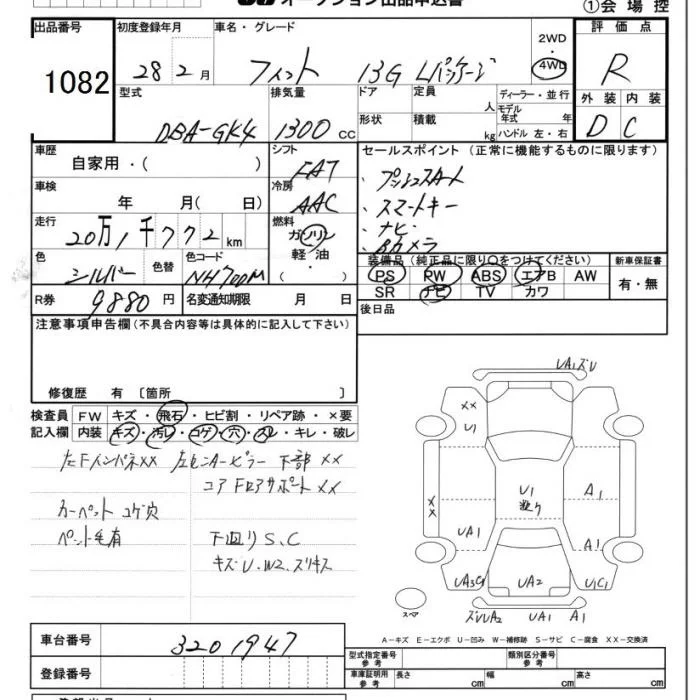 オークション出品申込書
①会場控
出品番号
1082
初度登録年月
28 2 月
車名・グレード
フィット 13G Lパッケージ
2WD
・
4WD
評価点
R
外装 内装
D C
型式
DBA-GK4
排気量
1300 cc
ドア
定員
人
形状
積載
kg
ディーラー・並行
モデル年式 年
ハンドル 左・右
車歴
自家用・( )
シフト
FAT
車検
年 月( 日)
冷房
AAC
走行
20万1千772 km
燃料
ガソリン
軽油
・( )
色
シルバー
色替
色コード
NH700M
R券
9880 円
名変通知期限 月 日
セールスポイント (正常に機能するものに限ります)
、プッシュスタート
、スマートキー
、ナビ
、Bカメラ
装備品 (純正品に限り○をつけてください)
PS PW ABS エアB AW
SR ナビ TV カワ
新車保証書
有・無
後日品
注意事項申告欄 (不具合内容等は具体的に記入して下さい)
修復歴 有 〔箇所 〕
検査員記入欄
FW キズ・飛石・ヒビ割・リペア跡・×要
内装 キズ・汚レ・コゲ・穴・スレ・キレ・破レ
左Fインパネ×× 左センAーピラー 下部 ××
コア Fロアサポート ××
カーペット コゲ穴
ペット毛有
下回り S、C
キズ・U・W2、ズリキズ
UA1ズU
××
U1
××
U1
A1
UA1
A1
UA3C1
UA2
U1C1
ズUUA2 UA1 A1
スペア
A-キズ E-エクボ U-凹み W-補修跡 S-サビ C-腐食 XX-交換済
車台番号
3201947
登録番号
型式指定番号 参考
類別区分番号 参考
車庫証明用 参考
長さ cm
幅 cm
高さ cm